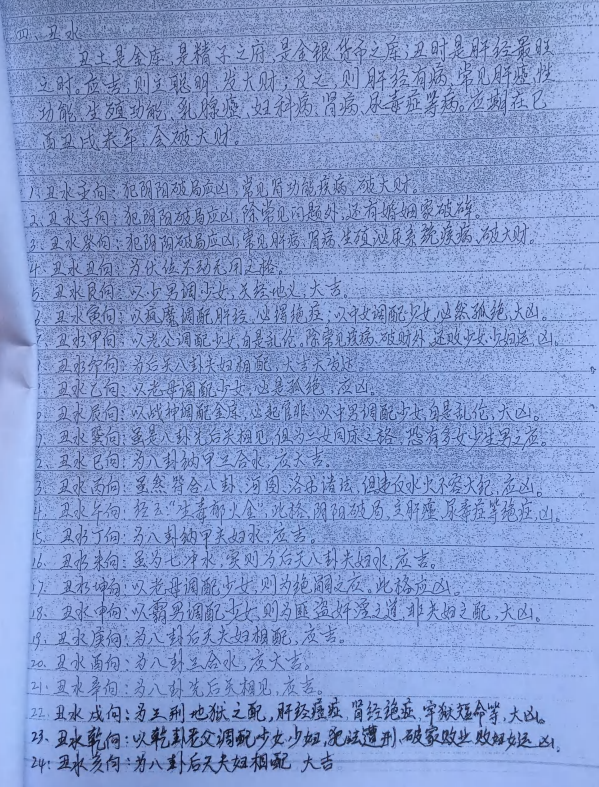 四、丑水
丑土是金库,是精子之府,是金银货币之库;丑时是肝经最旺
之时。应吉,则主聪明,发大财;反之,则肝经有病,常见肝虚,性
功能、生殖功能、乳腺癌、妇科病、肾病、尿毒症等病。应期在巳
酉丑戌未年,会破大财。
1、丑水壬向:犯阴阳破局应凶,常见肾功能疾病,破大财。
2、丑水子向:犯阴阳破局应凶,除常见问题外,还有婚姻家破碎。
3、丑水癸向:犯阴阳破局应凶,常见肝病,肾病,生殖泌尿系统疾病,破大财。
4、丑水丑向:为伏位不动无用之格。
5、丑水艮向:以少男调少女,天经地义,大吉。
丑水寅向:以疯魔调配肝经,必得绝症;以中女调配少女,必然孤绝,大凶。
丑水甲向:以老公调配少女,自是乱伦。除常见疾病、破财外,还败少女、少妇运,凶。
丑水乙向:以老母调配少女,必是孤绝,应凶。
丑水辰向:以战神调配金库,必起官非;以中男调配少女,自是乱伦,大凶。
丑水巽向:虽是八卦先后天相见,但为二女同床之格,恐有多女少生男之应。
丑水巳向:为八卦纳甲三合水,应大吉。
丑水丙向:虽然符合八卦、河图、洛书诸法,但违反水火不容大忌,应凶。
丑水午向:经云"生毒郁火金"此格,阴阳破局,主肝虚、尿毒症等绝症,凶。
15、丑水丁向:为八卦纳甲夫妇水,应吉。
16、丑水未向:虽为七冲水,实则为后天八卦夫妇水,应吉。
17、丑水坤向:以老母调配少女,则为绝嗣之应。此格应凶。
18、丑水申向:以霸男调配少女,则为匪盗奸淫之道,非夫妇之配,大凶。
19、丑水庚向:为八卦后天夫妇相配,应吉。
20、丑水酉向:为八卦三合水,应大吉。
21、丑水辛向:为八卦先后天相见,应吉。
22、丑水戌向:为三刑地狱之配,肝经癌症,肾经绝症,牢狱短命等,大凶。
23、丑水乾向:以乾卦老父调配少女、少妇,犯法遭刑,破家败业,败妇女运,凶。
24:丑水亥向:为八卦后天夫妇相配 大吉